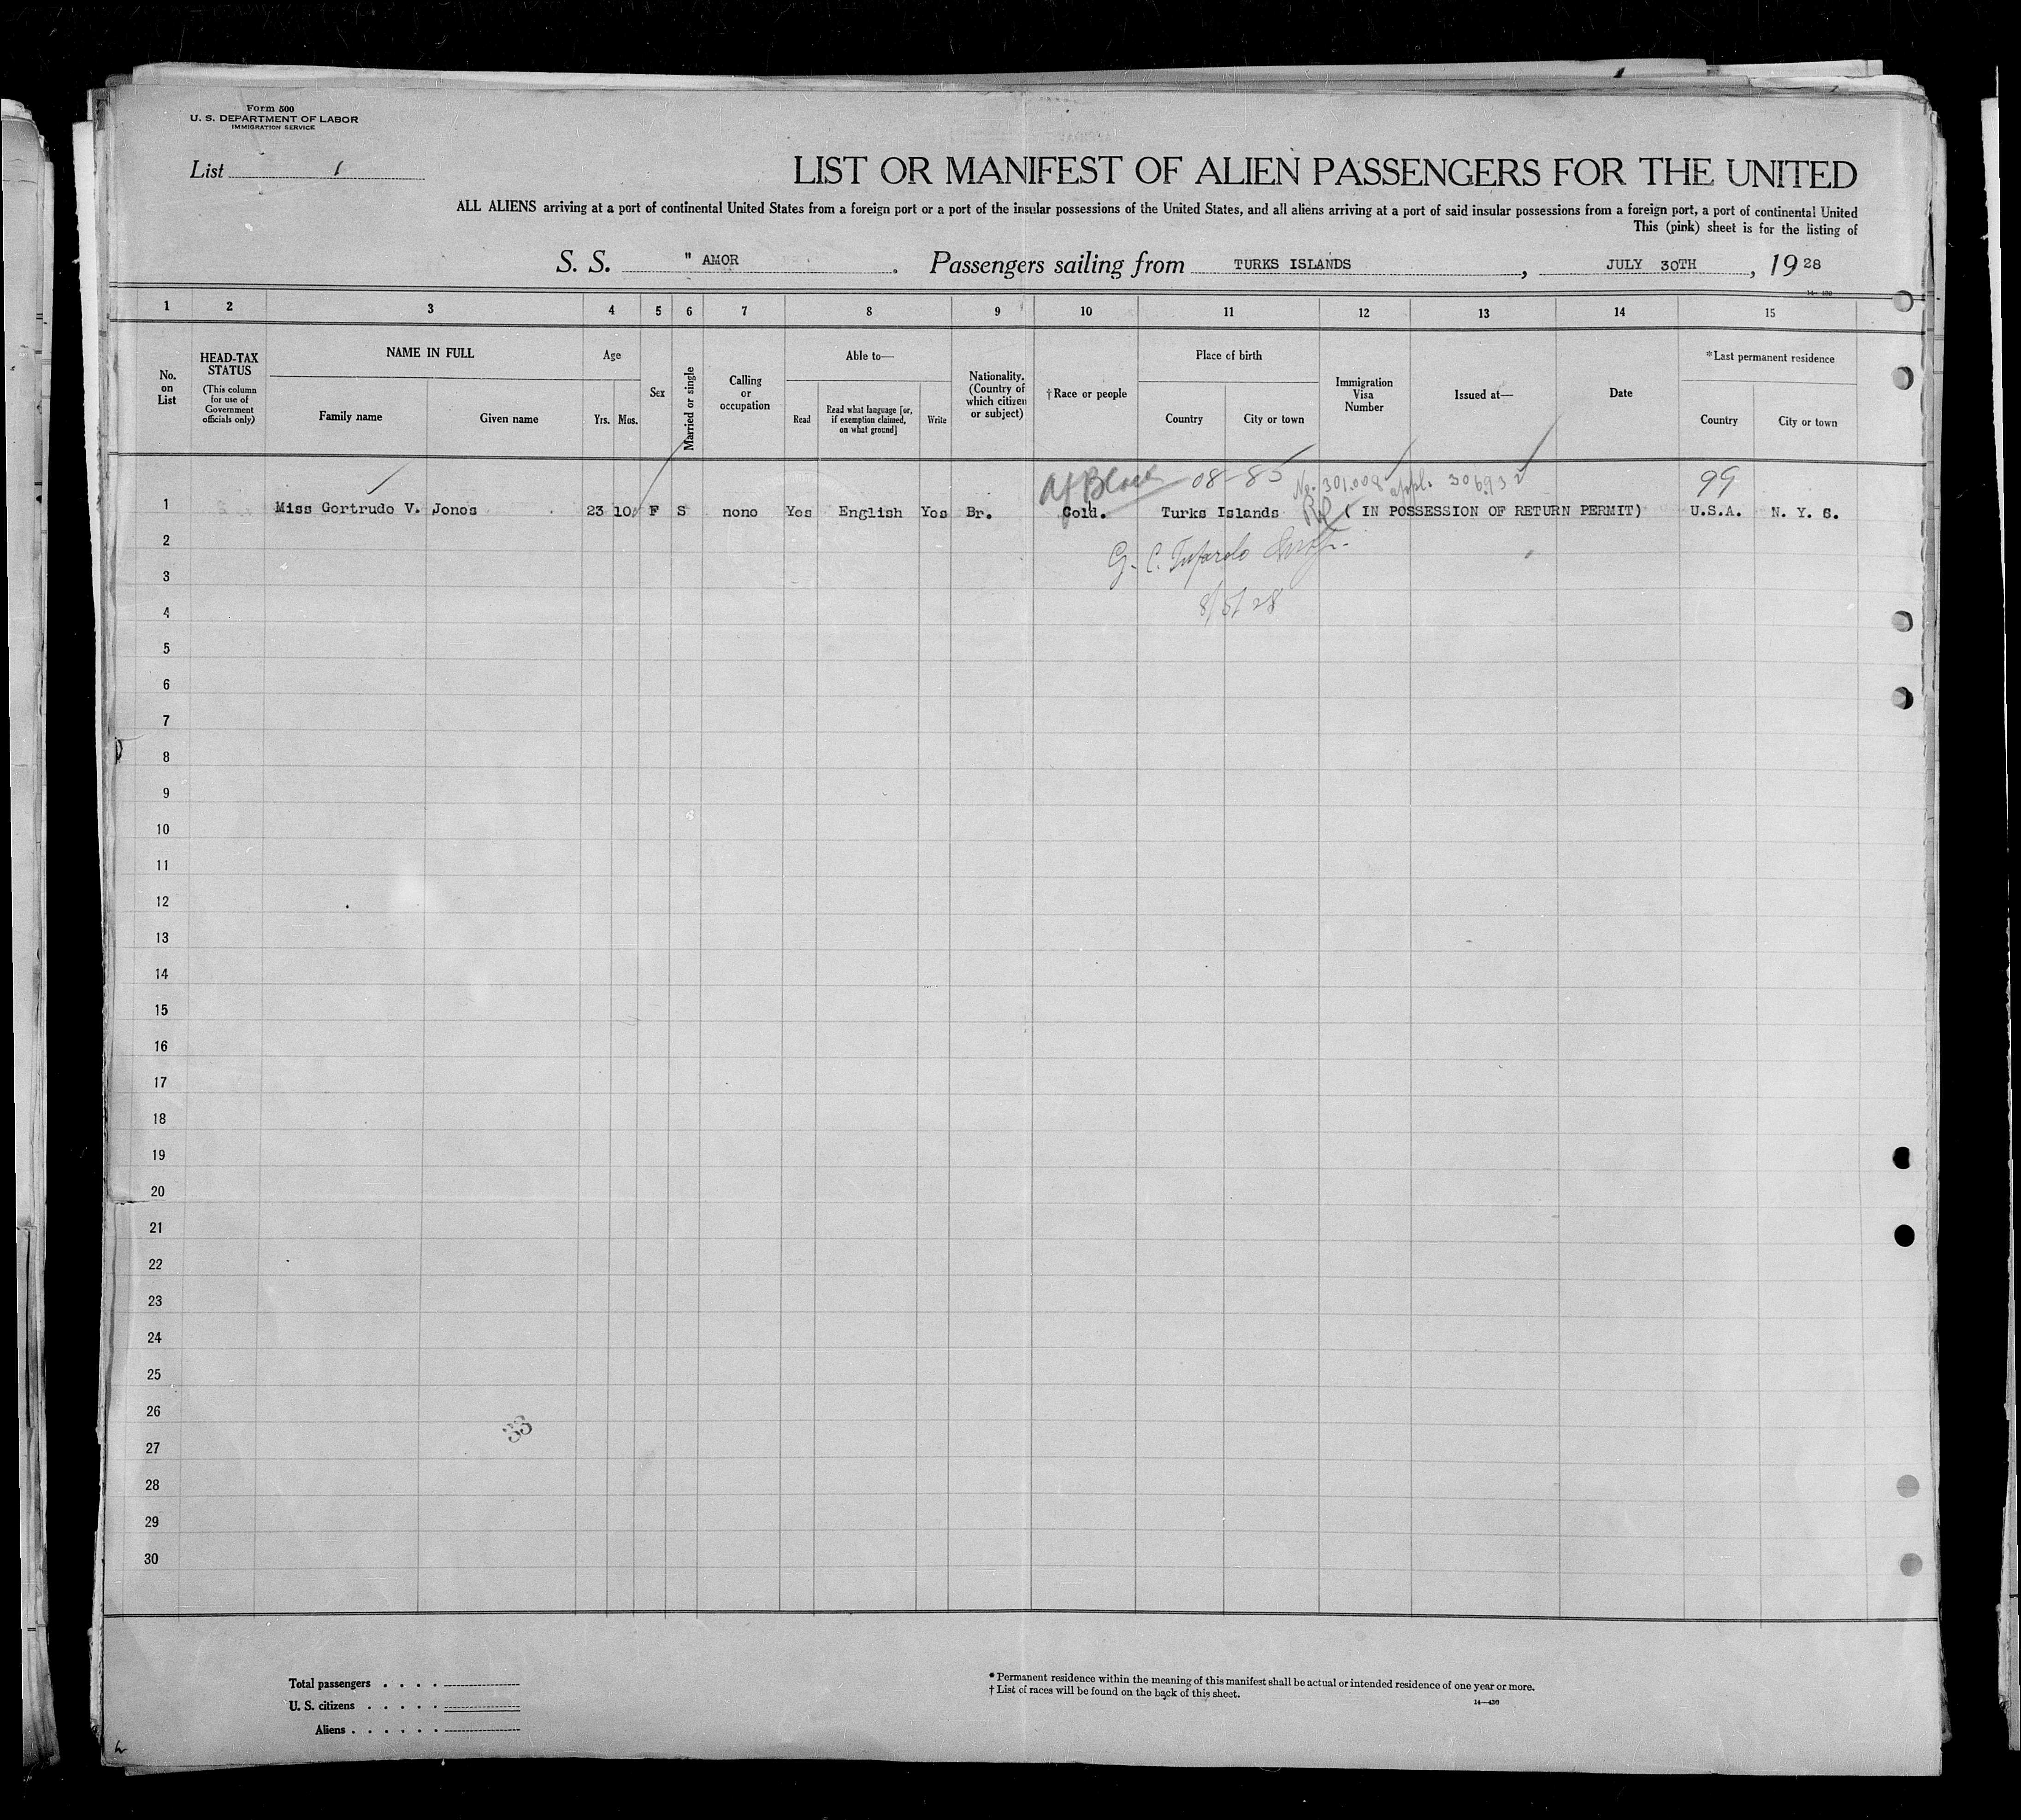 Form 500
U. S. DEPARTMENT OF LABOR
IMMIGRATION SERVICE
List 1
LIST OR MANIFEST OF ALIEN PASSENGERS FOR THE UNITED
ALL ALIENS arriving at a port of continental United States from a foreign port or a port of the insular possessions of the United States, and all aliens arriving at a port of said insular possessions from a foreign port, a port of continental United
This (pink) sheet is for the listing of
S. S. " AMOR . Passengers sailing from TURKS ISLANDS , JULY 30TH , 1928
1 2 3 4 5 6 7 8 9 10 11 12 13 14 15
No. on List
HEAD-TAX STATUS
(This column for use of Government officials only)
NAME IN FULL
Family name Given name
Age
Yrs. Mos.
Sex
Married or single
Calling or occupation
Able to—
Read
Read what language [or, if exemption claimed, on what ground]
Write
Nationality. (Country of which citizen or subject)
†Race or people
Place of birth
Country City or town
Immigration Visa Number
Issued at—
Date
*Last permanent residence
Country City or town
Af Black 08-85 No. 301.008 appl. 306932 99
1 Miss Gertrude V. Jones 23 10 F S none Yes English Yes Br. Cold. Turks Islands RP ( IN POSSESSION OF RETURN PERMIT) U.S.A. N. Y. C.
2
G. C.
3
8/5/28
4
5
6
7
8
9
10
11
12
13
14
15
16
17
18
19
20
21
22
23
24
25
26
33
27
28
29
30
Total passengers . . . .
U. S. citizens . . . . .
Aliens . . . . . .
* Permanent residence within the meaning of this manifest shall be actual or intended residence of one year or more.
† List of races will be found on the back of this sheet.
14—430